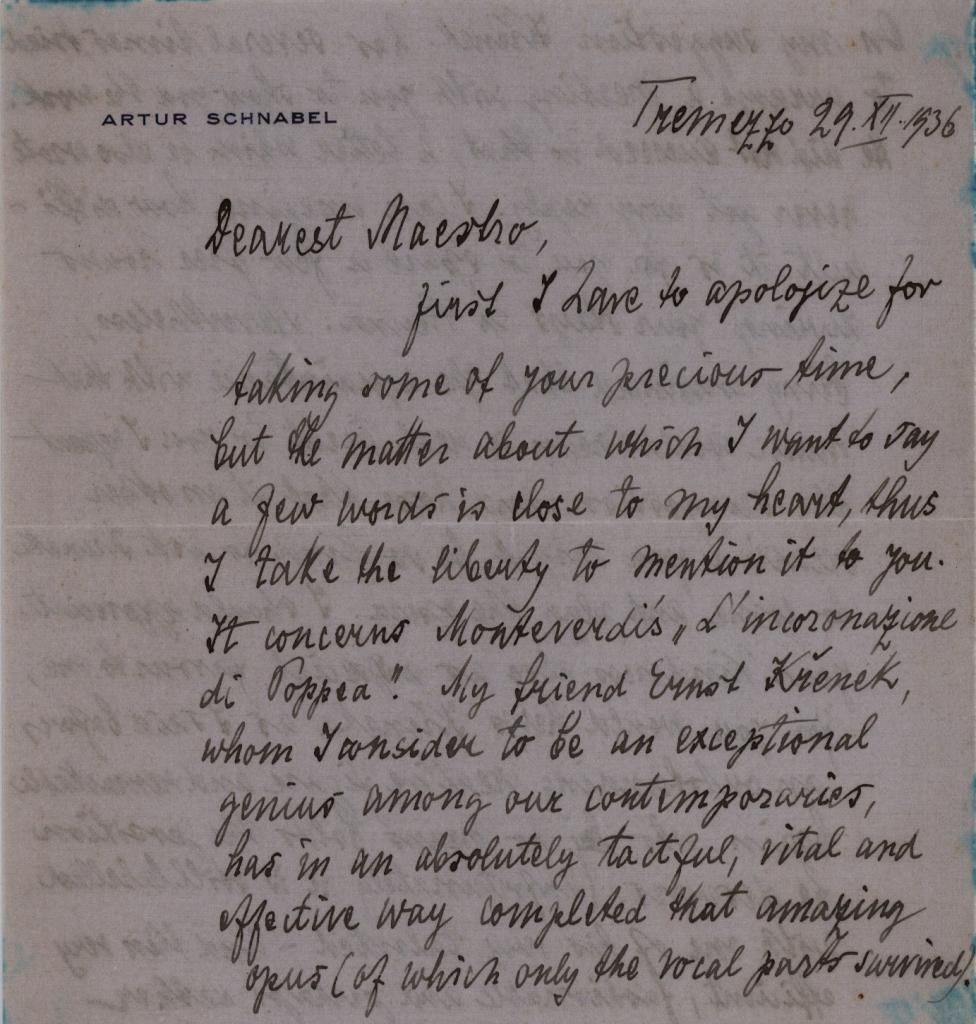 ARTUR SCHNABEL
Tremezzo 29.XII.1936
Dearest Maestro,
first I have to apologize for
taking some of your precious time,
but the matter about which I want to say
a few words is close to my heart, thus
I take the liberty to mention it to you.
It concerns Monteverdi's „L'incoronazione
di Poppea". My friend Ernst Křenek,
whom I consider to be an exceptional
genius among our contemporaries,
has in an absolutely tactful, vital and
effective way completed that amazing
opus (of which only the vocal parts survived).